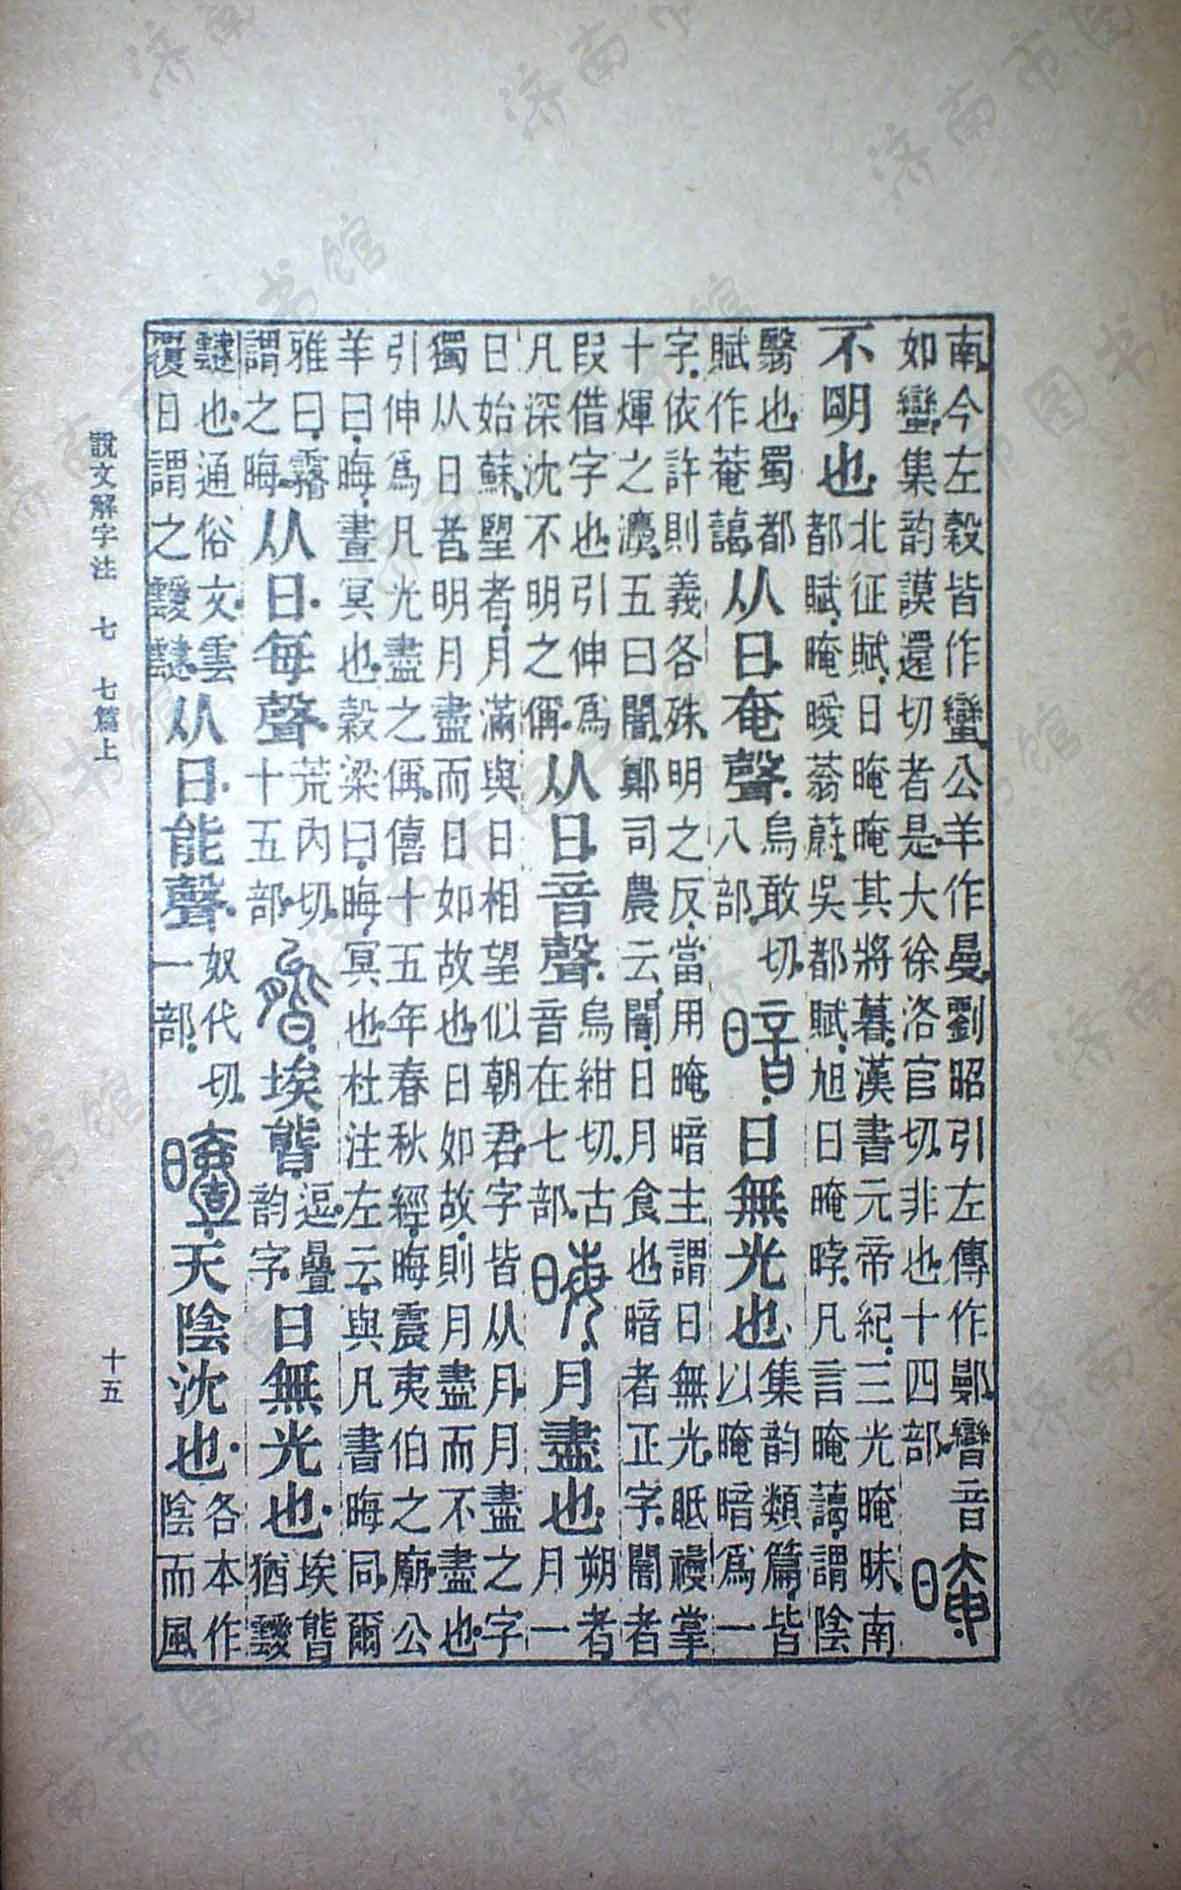 南今左穀皆作蠻公羊作曼劉昭引左傳作鄤曫音
如蠻集韵謨還切者是大徐洛官切非也十四部
晻
不明也
北征賦日晻晻其將暮漢書元帝紀三光晻昧南
都賦晻曖蓊蔚吳都賦旭日晻凡言晻藹謂陰
翳也蜀都
賦作菴藹
从日奄聲
烏敢切
八部
暗
日無光也
集韵類篇皆
以晻暗爲一
字依許則義各殊明之反當用晻暗主謂日無光眡祲掌
十煇之灋五曰闇鄭司農云闇日月食也暗者正字闇者
叚借字也引伸爲
凡深沈不明之偁
从日音聲
烏紺切古
音在七部
晦
月盡也
朔者
月一
日始蘇朢者月滿與日相望似朝君字皆从月月盡之字
獨从日者明月盡而日如故也日如故則月盡而不盡也
引伸爲凡光盡之偁僖十五年春秋經晦震夷伯之廟公
羊曰晦晝冥也穀梁曰晦冥也杜注左云與凡書晦同爾
雅曰霿
謂之晦
从日每聲
荒内切
十五部
㬗
埃㬗
逗疊
韵字
日無光也
埃㬗
猶靉
靆也通俗文雲
覆日謂之靉靆
从日能聲
奴代切
一部
曀
天陰沈也
各本作
陰而風
說文解字注 七 七篇上
十五
济南市图书馆